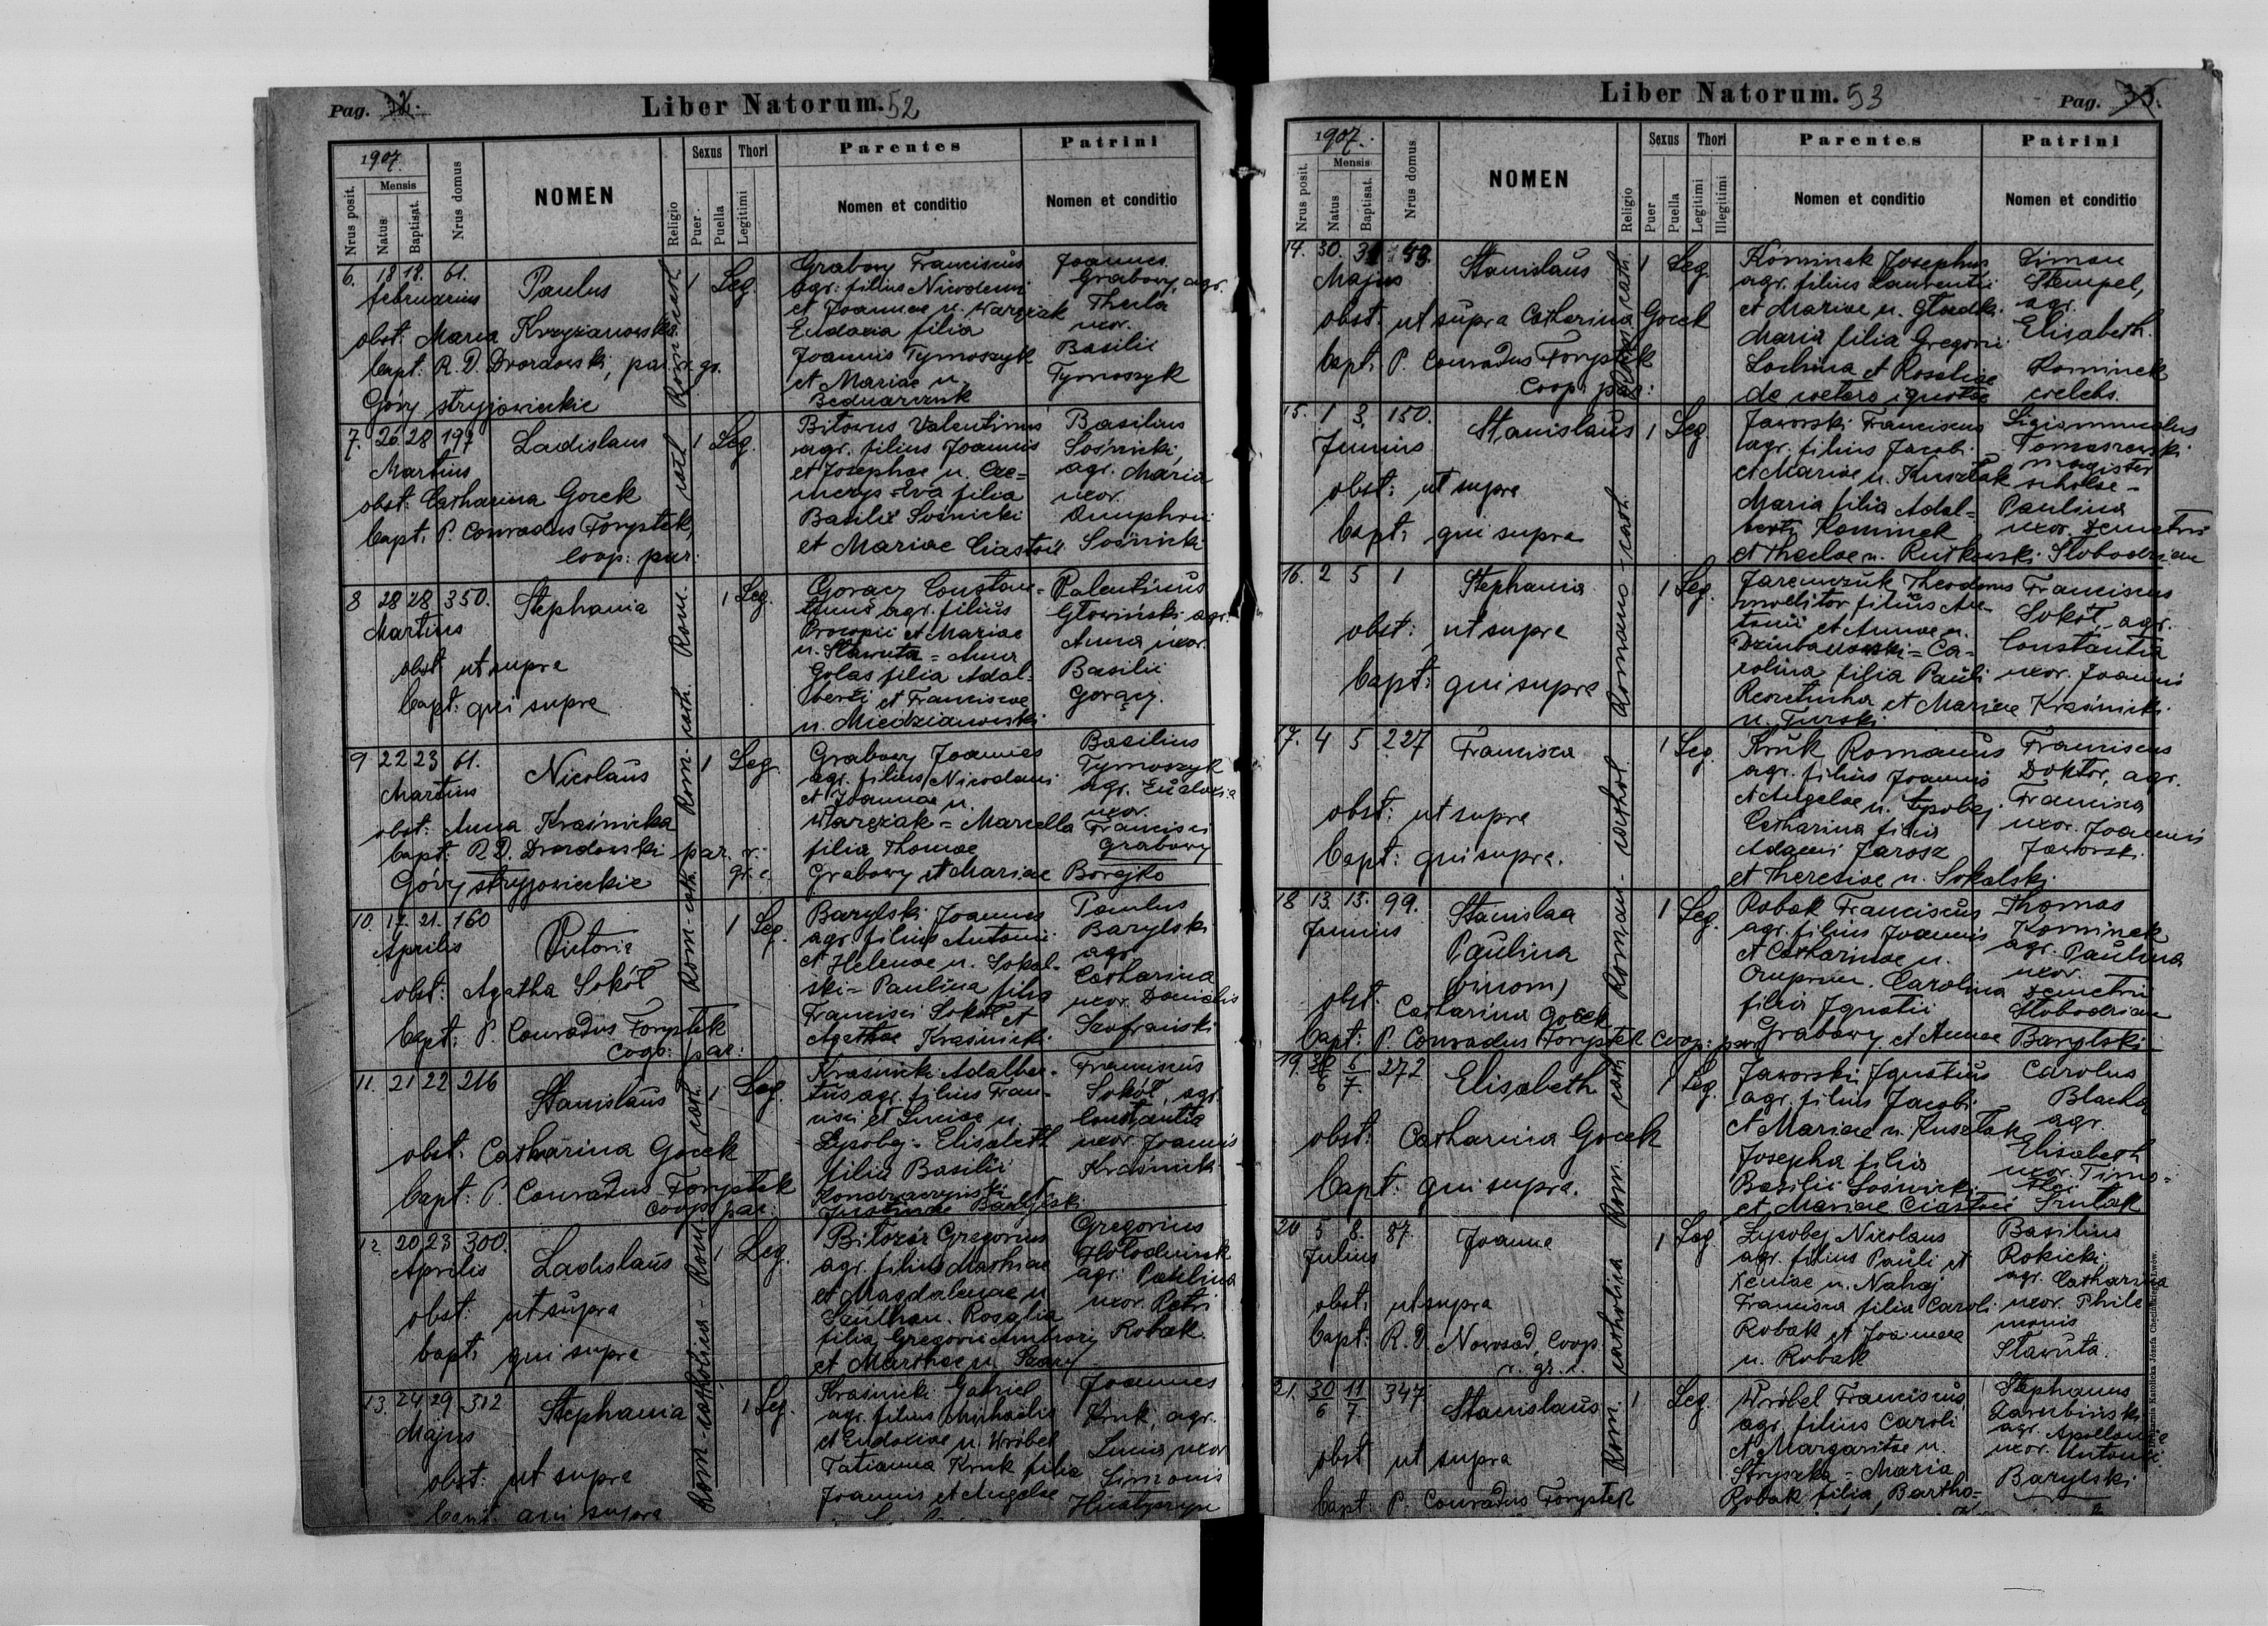 Pag. 32.
Liber Natorum. 52
1907.
Nrus posit.
Mensis
Natus
Baptisat.
Nrus domus
NOMEN
Religio
Sexus
Puer
Puella
Thori
Legitimi
Parentes
Nomen et conditio
Patrini
Nomen et conditio
6. 18 18. 61. Paulus 1 Leg.
februarius
obst: Maria Krzyżanowska
bapt. R. D. Dvordovski, par. r. gr.
Góry stryjowieckie
Grabovy Franciscus
agr. filius Nicodemi
et Joannae n. Warężak
Eudoxia filia
Joannis Tymoszyk
et Mariae n.
Bednarczuk
Joannes
Grabovy, agr.
Thecla
uxor.
Basilii
Tymoszyk
7. 26 28 197 Ladislaus 1 Leg.
Martius
obst: Catharina Gorek
bapt. P. Conradus Forystek,
coop: par:
Bitovus Valentinus
agr. filius Joannis
et Josephae n.
Eva filia
Basilii Sośnicki
et Mariae Ciastoń
Basilius
Sośnicki,
agr. Maria
uxor.
Onuphrii
Sośnicki
8 28 28 350. Stephania 1 Leg.
Martius
obst ut supra
bapt: qui supra
Goracy Constan-
tinus agr. filius
Procopii et Mariae
n. Sławuta = Anna
Golas filia Adal-
berti et Franciscae
n. Miedzianowski
Valentinus
Głowiński agr.
Anna uxor.
Basilii
Goracy.
9 22 23 61. Nicolaus 1 Leg
Martius
obst: Anna Kraśnicka
bapt: R. D. Dvordovski par. r.
gr. c.
Góry stryjowieckie
Grabovy Joannes
agr. filius Nicodemi
et Joannae n.
Warężak = Marcella
filia Thomae
Grabowy et Mariae Borejko
Basilius
Tymoszyk
agr. Eudoxia
uxor.
Francisci
Grabowy
10. 17. 21. 160 Victoria 1 Leg.
Aprilis
obst: Agatha Sokół
bapt: P. Conradus Forystek
coop: par:
Barylski Joannes
agr. filius Antonii
et Helenae n. Sokal-
ski = Paulina filia
Francisci Sokół et
Agathae Kraśnicki
Paulus
Barylski
agr.
Catharina
uxor Danielis
Szafrański
11. 21 22 216 Stanislaus 1 Leg.
obst: Catharina Gocek
bapt: P. Conradus Forystek
coop: par:
Kraśnicki Adalber-
tus agr. filius Fran-
cisci et Luciae n.
Łysobej = Elisabeth
filia Basilii
Justinae Barylski
Franciscus
Sokół, agr.
Constantia
uxor Joannis
Kraśnicki
12. 20 23 300. Ladislaus 1 Leg.
Aprilis
obst: ut supra
bapt: qui supra
Bitowus Gregorius
agr. filius Mathiae
et Magdalenae n
Szulhan. Rosalia
filia Gregorii
et Marthae n. Szary
Gregorius
Hołodniuk
agr. Paulina
uxor. Petri
Robak.
13. 24 29 312 Stephania 1 Leg.
Majus
obst: ut supra
bapt. qui supra
Kraśnicki Gabriel
agr. filius Michaelis
et Eudoxiae n. Wróbel
Tatianna Kruk filia
Joannis et Angelae
Joannes
Kruk, agr.
Lucia uxor
Simonis
Rom-catholica - Rom - cath. Rom - cath. Rom. cath. Rom. cath. Rom. cath.
Liber Natorum. 53
Pag. 33.
1907.
Nrus posit.
Mensis
Natus
Baptisat.
Nrus domus
NOMEN
Religio
Sexus
Puer
Puella
Thori
Legitimi
Illegitimi
Parentes
Nomen et conditio
Patrini
Nomen et conditio
14. 30. 31 Stanislaus 1 Leg.
Majus
obst: ut supra Catharina Gocek
bapt. P. Conradus Forystek
Coop. par:
Kominek Josephus
agr. filius Laurentii
et Mariae n.
Maria filia Gregorii
Lochina et Rosaliae
de cetero ignotae
Simon
Stempel,
agr.
Elisabeth.
Kominek
coelebs.
15. 1 3. 150. Stanislaus 1 Leg.
Junius
obst: ut supra
bapt. qui supra
Jaworski Franciscus
agr. filius Jacobi
et Mariae n. Kusztak
Maria filia Adal-
berti Kominek
et Theclae n. Rutkowski
Sigismundus
Tomaszewski
magister
scholae -
Paulina
uxor. Demetrii
Słobodzian
16. 2 5 1 Stephania 1 Leg.
obst: ut supra
bapt: qui supra
Jaremczuk Theodorus
molitor filius An-
tonii et Annae n.
Dziubanowski = Ca-
rolina filia Pauli
Reszetucha et Mariae
n. Turski
Franciscus
Sokół, agr.
Constantia
uxor. Joannis
Kraśnicki
17. 4 5 227 Francisca 1 Leg.
obst: ut supra
bapt: qui supra.
Kruk Romanus
agr. filius Joannis
et Angelae n. Łysobej
Catharina filia
Adami Jarosz
et Theresiae n. Sokalski
Franciscus
Doktor, agr.
Francisca
uxor. Joannis
Jaworski.
18 13. 15. 99. Stanislaa 1 Leg.
Junius
Paulina
(binom)
obst: Catharina Gocek
bapt: P. Conradus Forystek Coop: par
Robak Franciscus
agr. filius Joannis
et Catharinae n.
Carolina
filia Ignatii
Grabowy et Annae Barylski
Thomas
Kominek
agr. Paulina
uxor.
Demetrii
Słobodzian
19. 6 6/7. 272 Elisabeth 1 Leg.
obst: Catharina Gocek
bapt: qui supra.
Jaworski Ignatius
agr. filius Jacobi
et Mariae n. Kusztak
Josepha filia
Basilii Sośnicki
et Mariae Ciastoń
Carolus
Blacha
agr.
Elisabeth
uxor. Timo-
thei
20 5 8. 87. Joanna 1 Leg.
Julius
obst: ut supra
bapt: R. D. Nowosad, Coop.
r. gr. c.
Łysobej Nicolaus
agr. filius Pauli et
Xeniae n. Nahaj
Francisca filia Caroli
Robak et Joannae
n. Robak
Basilius
Rokicki,
agr. Catharina
uxor. Phile
monis
Sławuta.
21. 30/6 11/7. 347 Stanislaus 1 Leg.
obst ut supra
bapt: P. Conradus Forystek
Wróbel Franciscus
agr. filius Caroli
et Margaritae n.
Stryszka = Maria
Robak filia Bartho-
Stephanus
Zarubiński
agr. Apollonia
uxor. Antonii
Barylski
Rom. catholica Rom. cath Roman - cathol. Romano - cath. Roman cath.
Drukarnia Katolicka Józefa Chęcińskiego, Lwów.